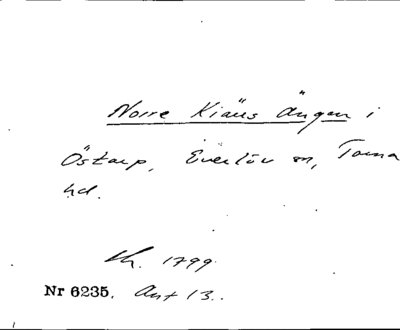 Norre Kiäus Ängen i
Östarp, Everlöv sn, Torna
hd.
Lh. 1799.
Nr 6235, Akt 13.